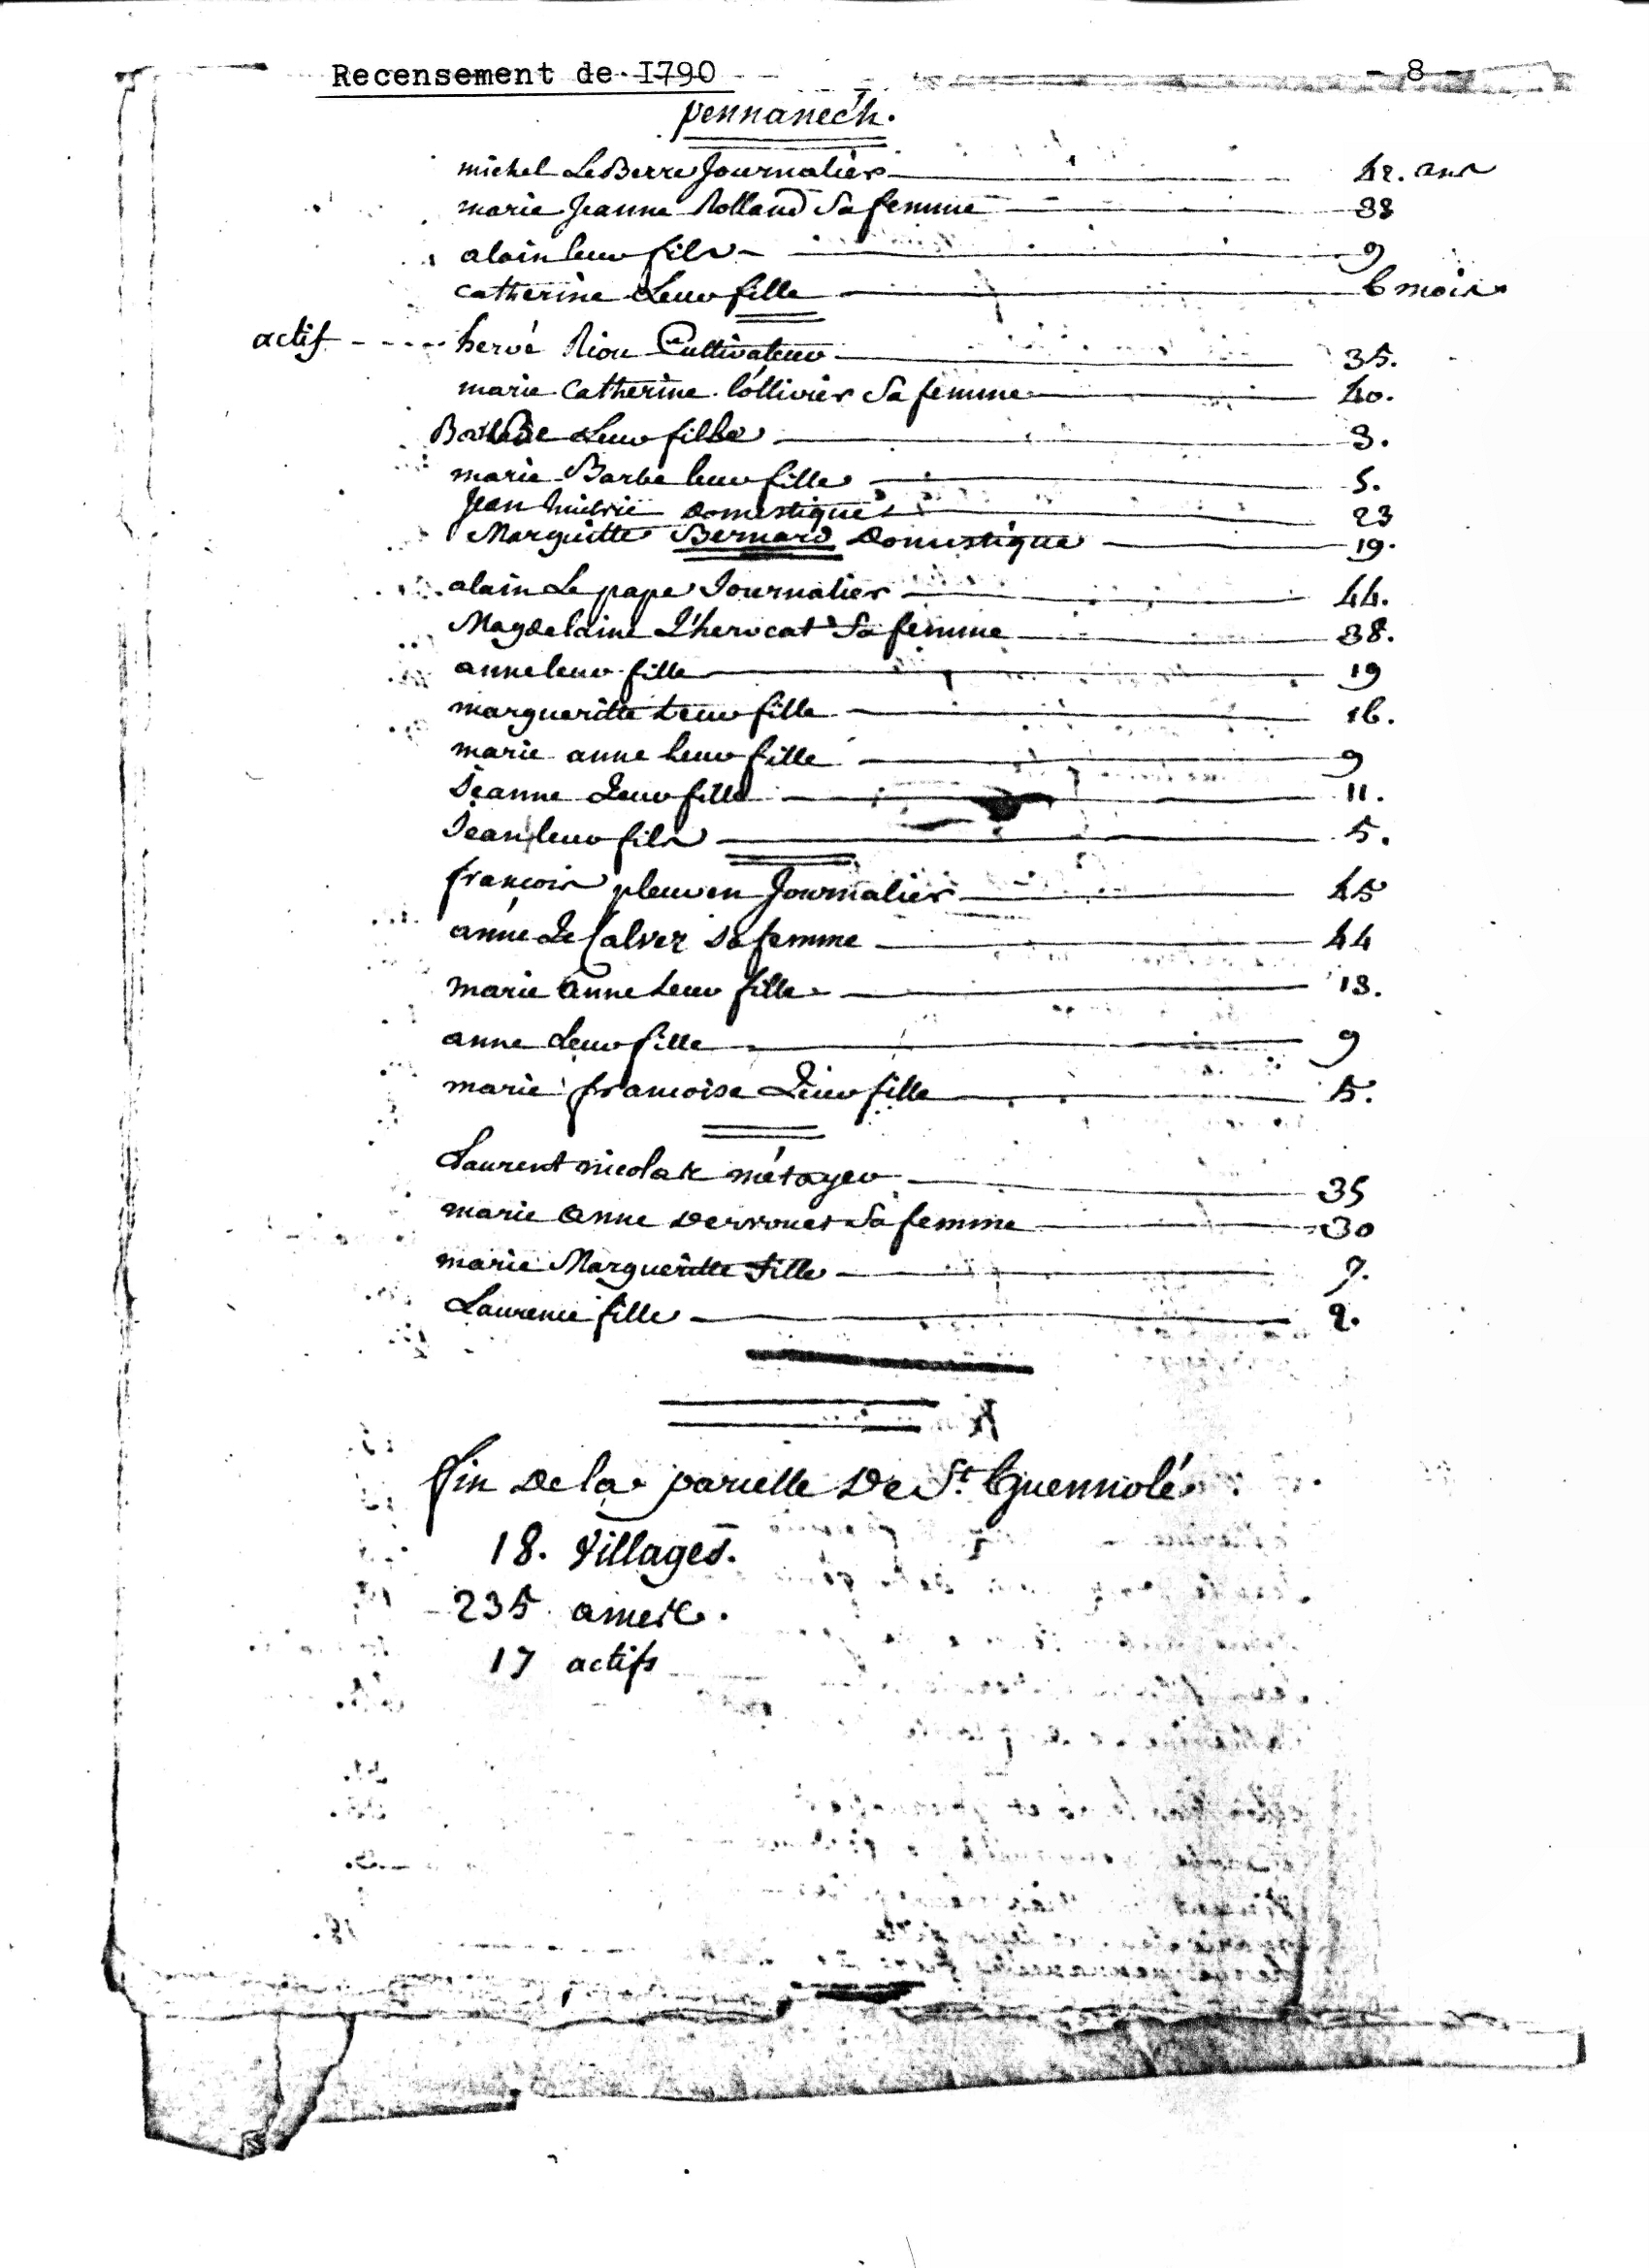 Recensement de I790 - 8 -
pennanech.
michel Le Berre Journalier 42. ans
marie Jeanne Rolland Sa femme 38
alain leur fils 9
catherine Leur fille 6 mois
actif hervé Riou Cultivateur 35.
marie Catherine l'ollivier Sa femme 40.
Leur fille 3.
marie Barbe leur fille 5.
Jean domestique 23
Margueritte Bernard Domestique 19.
alain Le pape Journalier 44.
Magdelaine Sa femme 38.
anne leur fille 19
margueritte Leur fille 16.
marie anne leur fille 9
Jeanne Leur fille 11.
Jean leur fils 5.
françois pleuven Journalier 45
anne Le Calvez sa femme 44
marie anne Leur fille 13.
anne Leur fille 9
marie francoise Leur fille 5.
Laurent nicolas métayer 35
marie anne Derrouet Sa femme 30
marie Margueritte fille 7.
Laurence fille 2.
fin de la parcelle De St. Guennolé
18. Villages.
235 ames.
17 actifs